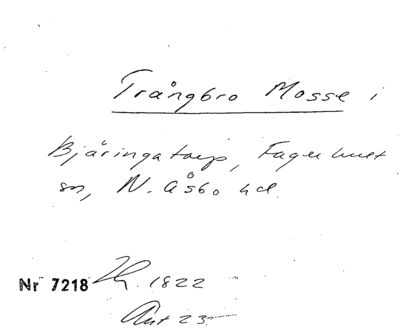 Trångbro Mosse i
Bjäringatorp, Fagerhult
sn, N. Åsbo hd.
Nr 7218 1822
Ant 23